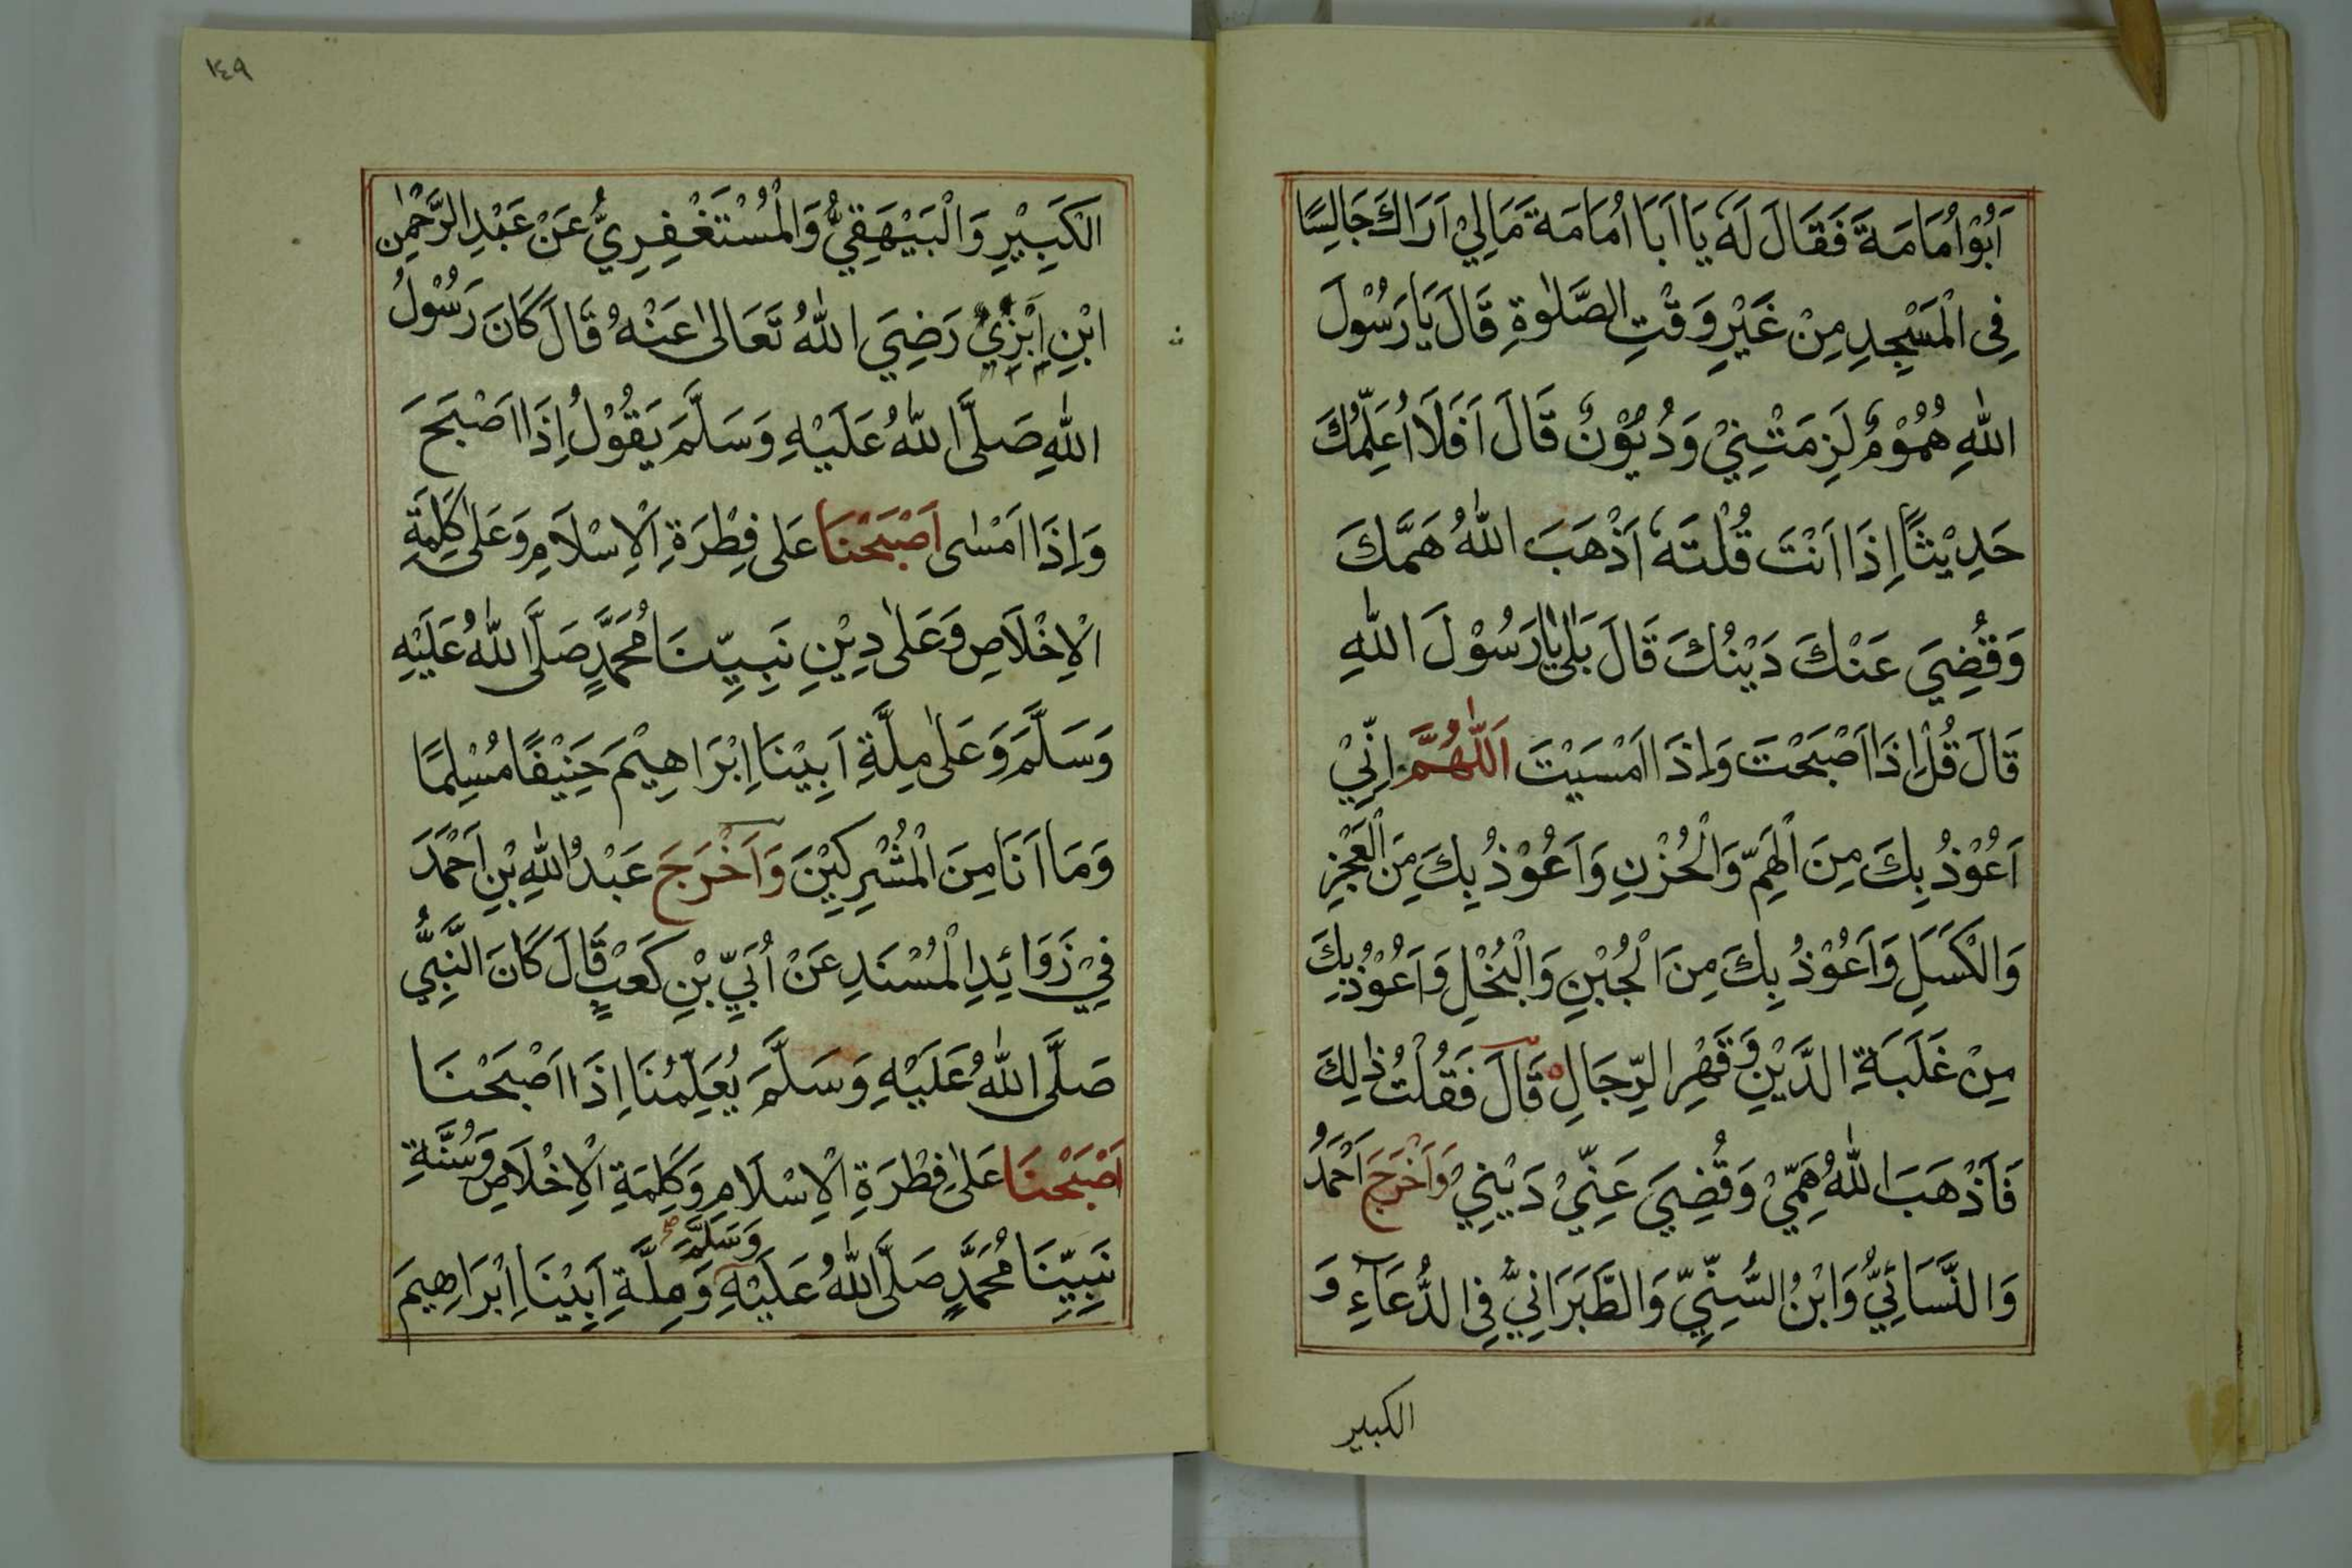 اَبُوْ اُمَامَةَ فَقَالَ لَهٗ يَا اَبَا اُمَامَةَ مَالِيْ اَرَاكَ جَالِسًا
فِى الْمَسْجِدِ مِنْ غَيْرِ وَقْتِ الصَّلٰوةِ قَالَ يَا رَسُوْلَ
اللّٰهِ هُمُوْمٌ لَزِمَتْنِيْ وَدُيُوْنٌ قَالَ اَفَلَا اُعَلِّمُكَ
حَدِيْثًا اِذَا اَنْتَ قُلْتَهٗ اَذْهَبَ اللّٰهُ هَمَّكَ
وَقُضِيَ عَنْكَ دَيْنُكَ قَالَ بَلٰى يَا رَسُوْلَ اللّٰهِ
قَالَ قُلْ اِذَا اَصْبَحْتَ وَاِذَا اَمْسَيْتَ اَللّٰهُمَّ اِنِّيْ
اَعُوْذُ بِكَ مِنَ الْهَمِّ وَالْحُزْنِ وَاَعُوْذُ بِكَ مِنَ الْعَجْزِ
وَالْكَسَلِ وَاَعُوْذُ بِكَ مِنَ الْجُبْنِ وَالْبُخْلِ وَاَعُوْذُ بِكَ
مِنْ غَلَبَةِ الدَّيْنِ وَقَهْرِ الرِّجَالِ قَالَ فَقُلْتُ ذٰلِكَ
فَاَذْهَبَ اللّٰهُ هَمِّيْ وَقُضِيَ عَنِّيْ دَيْنِيْ وَاَخْرَجَ اَحْمَدُ
وَالنَّسَائِيُّ وَابْنُ السُّنِّيِّ وَالطَّبَرَانِيُّ فِى الدُّعَآءِ وَ
الكبير
١٤٩
الْكَبِيْرِ وَالْبَيْهَقِيُّ وَالْمُسْتَغْفِرِيُّ عَنْ عَبْدِ الرَّحْمٰنِ
ابْنِ اَبْزِيْ رَضِيَ اللّٰهُ تَعَالٰى عَنْهُ قَالَ كَانَ رَسُوْلُ
اللّٰهِ صَلَّى اللّٰهُ عَلَيْهِ وَسَلَّمَ يَقُوْلُ اِذَا اَصْبَحَ
وَاِذَا اَمْسٰى اَصْبَحْنَا عَلٰى فِطْرَةِ الْاِسْلَامِ وَعَلٰى كَلِمَةِ
الْاِخْلَاصِ وَعَلٰى دِيْنِ نَبِيِّنَا مُحَمَّدٍ صَلَّى اللّٰهُ عَلَيْهِ
وَسَلَّمَ وَعَلٰى مِلَّةِ اَبِيْنَا اِبْرَاهِيْمَ حَنِيْفًا مُسْلِمًا
وَمَا اَنَا مِنَ الْمُشْرِكِيْنَ وَاَخْرَجَ عَبْدُ اللّٰهِ بْنِ اَحْمَدَ
فِيْ زَوَائِدِ الْمُسْنَدِ عَنْ اُبَيِّ بْنِ كَعْبٍ قَالَ كَانَ النَّبِيُّ
صَلَّى اللّٰهُ عَلَيْهِ وَسَلَّمَ يُعَلِّمُنَا اِذَا اَصْبَحْنَا
اَصْبَحْنَا عَلٰى فِطْرَةِ الْاِسْلَامِ وَكَلِمَةِ الْاِخْلَاصِ وَسُنَّةِ
نَبِيِّنَا مُحَمَّدٍ صَلَّى اللّٰهُ عَلَيْهِ وَسَلَّمَ وَمِلَّةِ اَبِيْنَا اِبْرَاهِيمَ